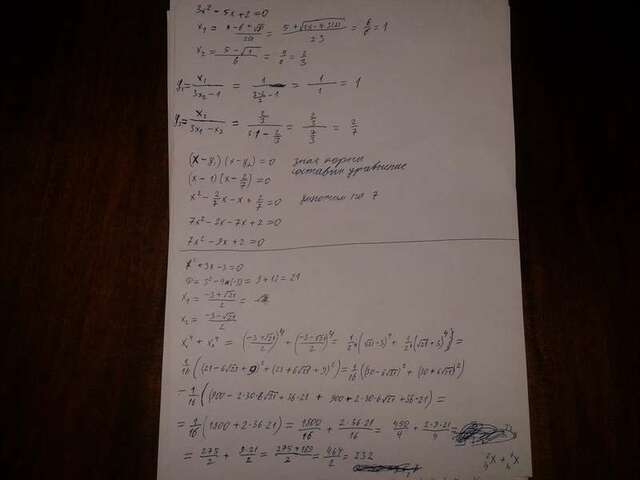 3x² - 5x + 2 = 0
x₁ = = = 6/6 = 1
x₂ = (5 - √1)/6 = = 2/3
y₁ = x₁/(3x₂ - 1) = = 1/1 = 1
y₂ = x₂/(3x₁ - x₂) = (2/3)/(3·1 - 2/3) = (2/3)/(7/3) = 2/7
(x - y₁)(x - y₂) = 0 зная корни
составим уравнение
(x - 1)(x - 2/7) = 0
x² - 2/7x - x + 2/7 = 0 умножим на 7
7x² - 2x - 7x + 2 = 0
7x² - 9x + 2 = 0
x² + 3x - 3 = 0
= 9 + 12 = 21
x₁ = (-3 + √21)/2 =
x₂ = (-3 - √21)/2
x₁⁴ + x₂⁴ = ((-3 + √21)/2)⁴ + ((-3 - √21)/2)⁴ = 1/2⁴(√21 - 3)⁴ + 1/2⁴(√21 + 3)⁴ =
1/16((21 - 6√21 + 9)² + (21 + 6√21 + 9)²) = 1/16((30 - 6√21)² + (30 + 6√21)²)
= 1/16(900 - 2·30·6√21 + 36·21 + 900 + 2·30·6√21 + 36·21) =
= 1/16(1800 + 2·36·21) = 1800/16 + 2·36·21/16 = 450/4 + 2·9·21/4 =
= + 9·21/2 = = = 232